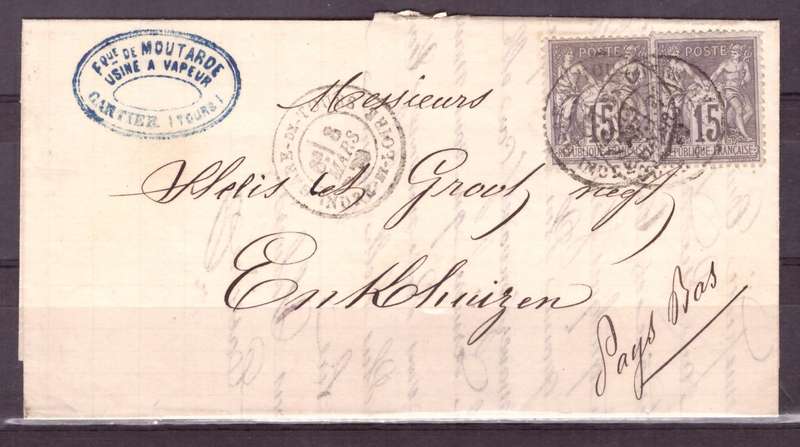 Fque DE MOUTARDE
USINE A VAPEUR
CARTIER (TOURS)
POSTE
15
REPUBLIQUE FRANÇAISE
POSTE
15
REPUBLIQUE FRANÇAISE
8
MARS
Messieurs
et Groot negts
Enkhuizen
Pays Bas